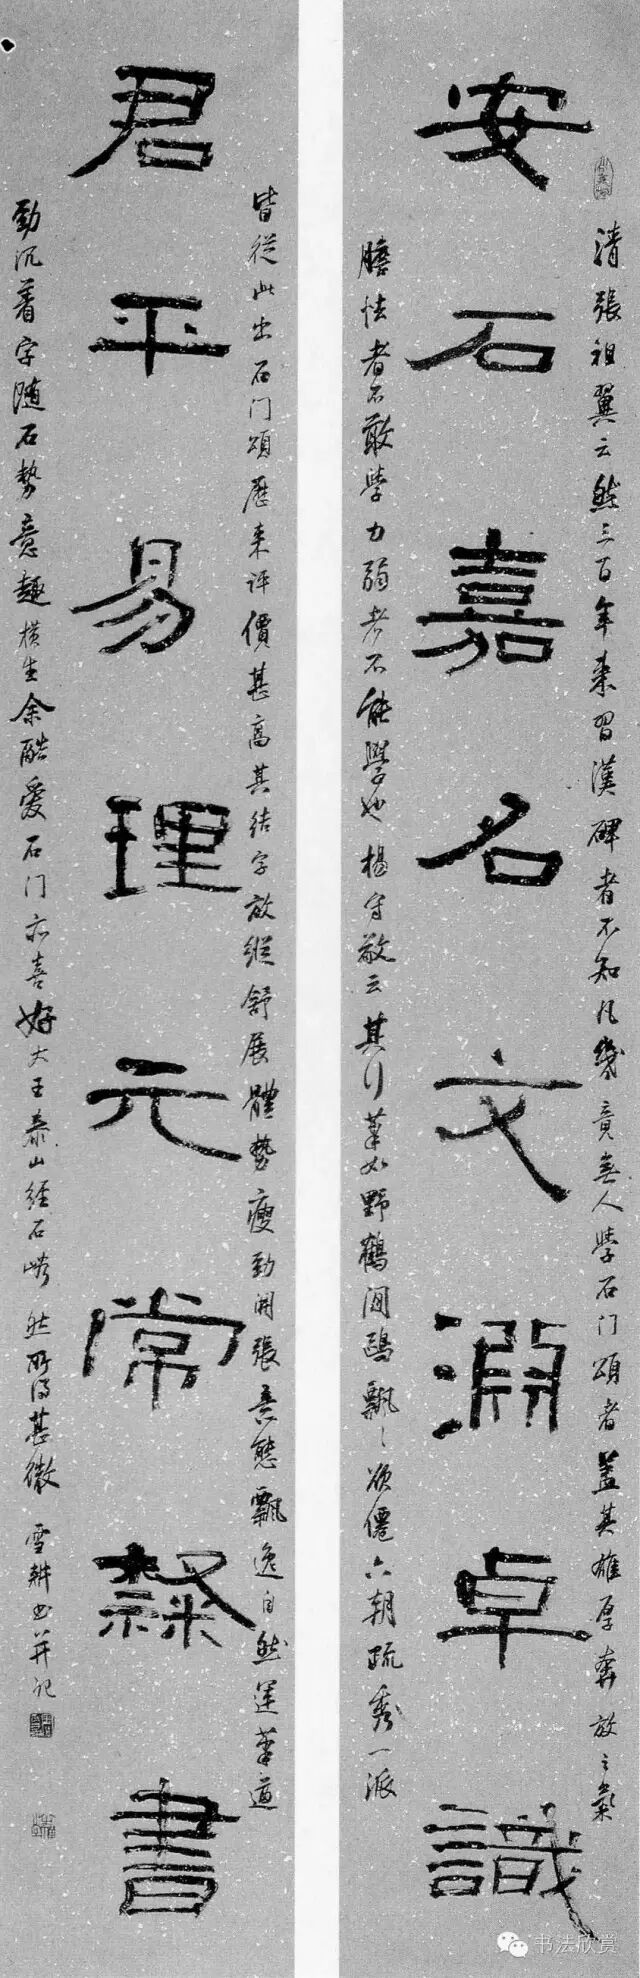 安石嘉名文淵卓識
清張祖翼云然三百年來習漢碑者不知凡幾竟無人學石门頌者盖其雄厚奔放之氣
膽怯者不敢學力弱者不能學也楊守敬云其行筆如野鶴閒鷗飄飄欲僊六朝疏秀一派
皆從此出石门頌歷来评價甚高其结字放縱舒展體勢瘦勁開張意態飄逸自然運筆遒
君平易理元常隸書
勁沉着字随石势意趣横生余酷爱石门亦喜好大王泰山经石峪然所得甚微
雪耕书并记
书法欣赏